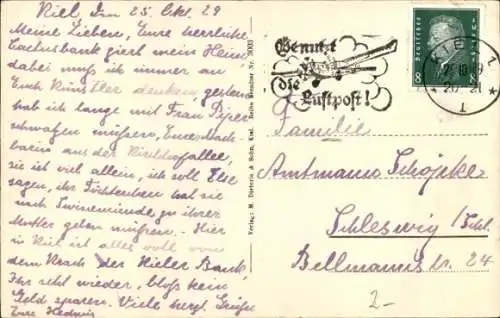 Kiel, den 25. Okt. 29
Meine Lieben, Eure herrliche
Cactusbank ziert mein Heim,
dabei muß ich immer an
Euch Künstler denken, gestern
hab ich lange mit Frau Piper
schwafen müssen, Eure Nach-
barin aus der Kirchhofallee,
sie ist viel allein, ich soll Else
sagen, ihr Töchterchen hat sie
nach Swinemünde zu ihrer
Mutter geben müssen. - Hier
in Kiel ist alles voll von
dem Krach der Kieler Bank,
Ihr seht wieder, bloß kein
Geld sparen. Viele herzl. Grüße
Eure Hedwig
Verlag: M. Dieterle & Sohn, Kiel.
Benutzt
die
Luftpost!
DEUTSCHES REICH
8 8
KIEL
1
Familie
Amtmann
Schleswig / Schl.
Bellmannstr. 24
2-